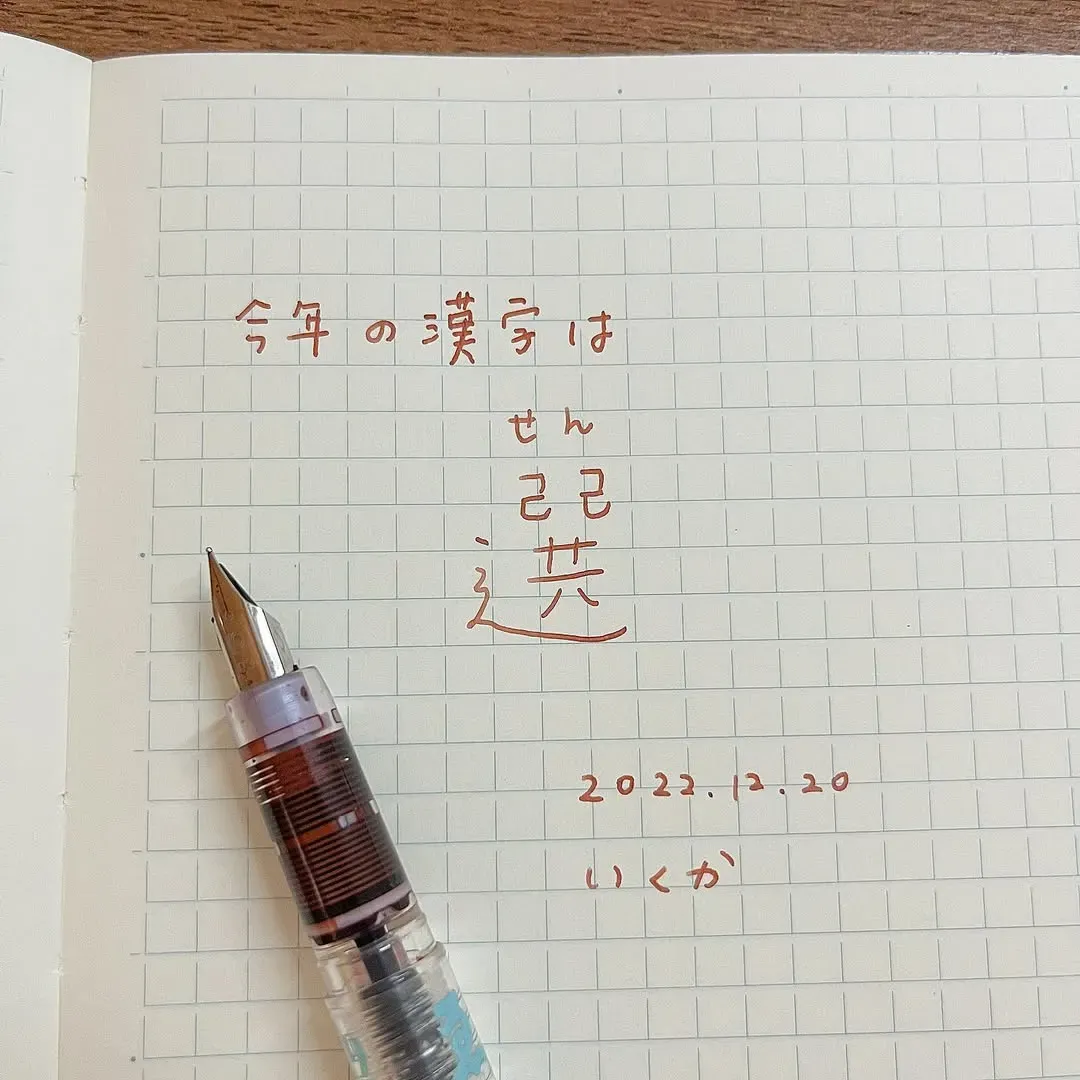 今年の漢字は
せん
選
2022.12.20
いくか